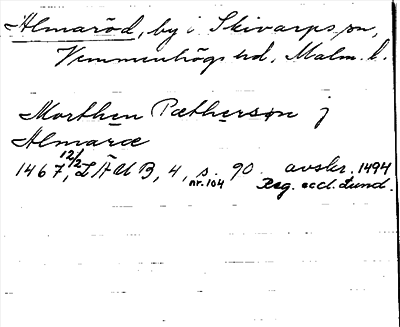 Almaröd, by i Skivarps sn,
Vemmenhögs hd, Malm. l.
Morthen Pætherson j
Almaræ
1467 12/2, LÄUB, 4, s. 90 avskr. 1494
nr. 104 Reg. eccl. Lund.